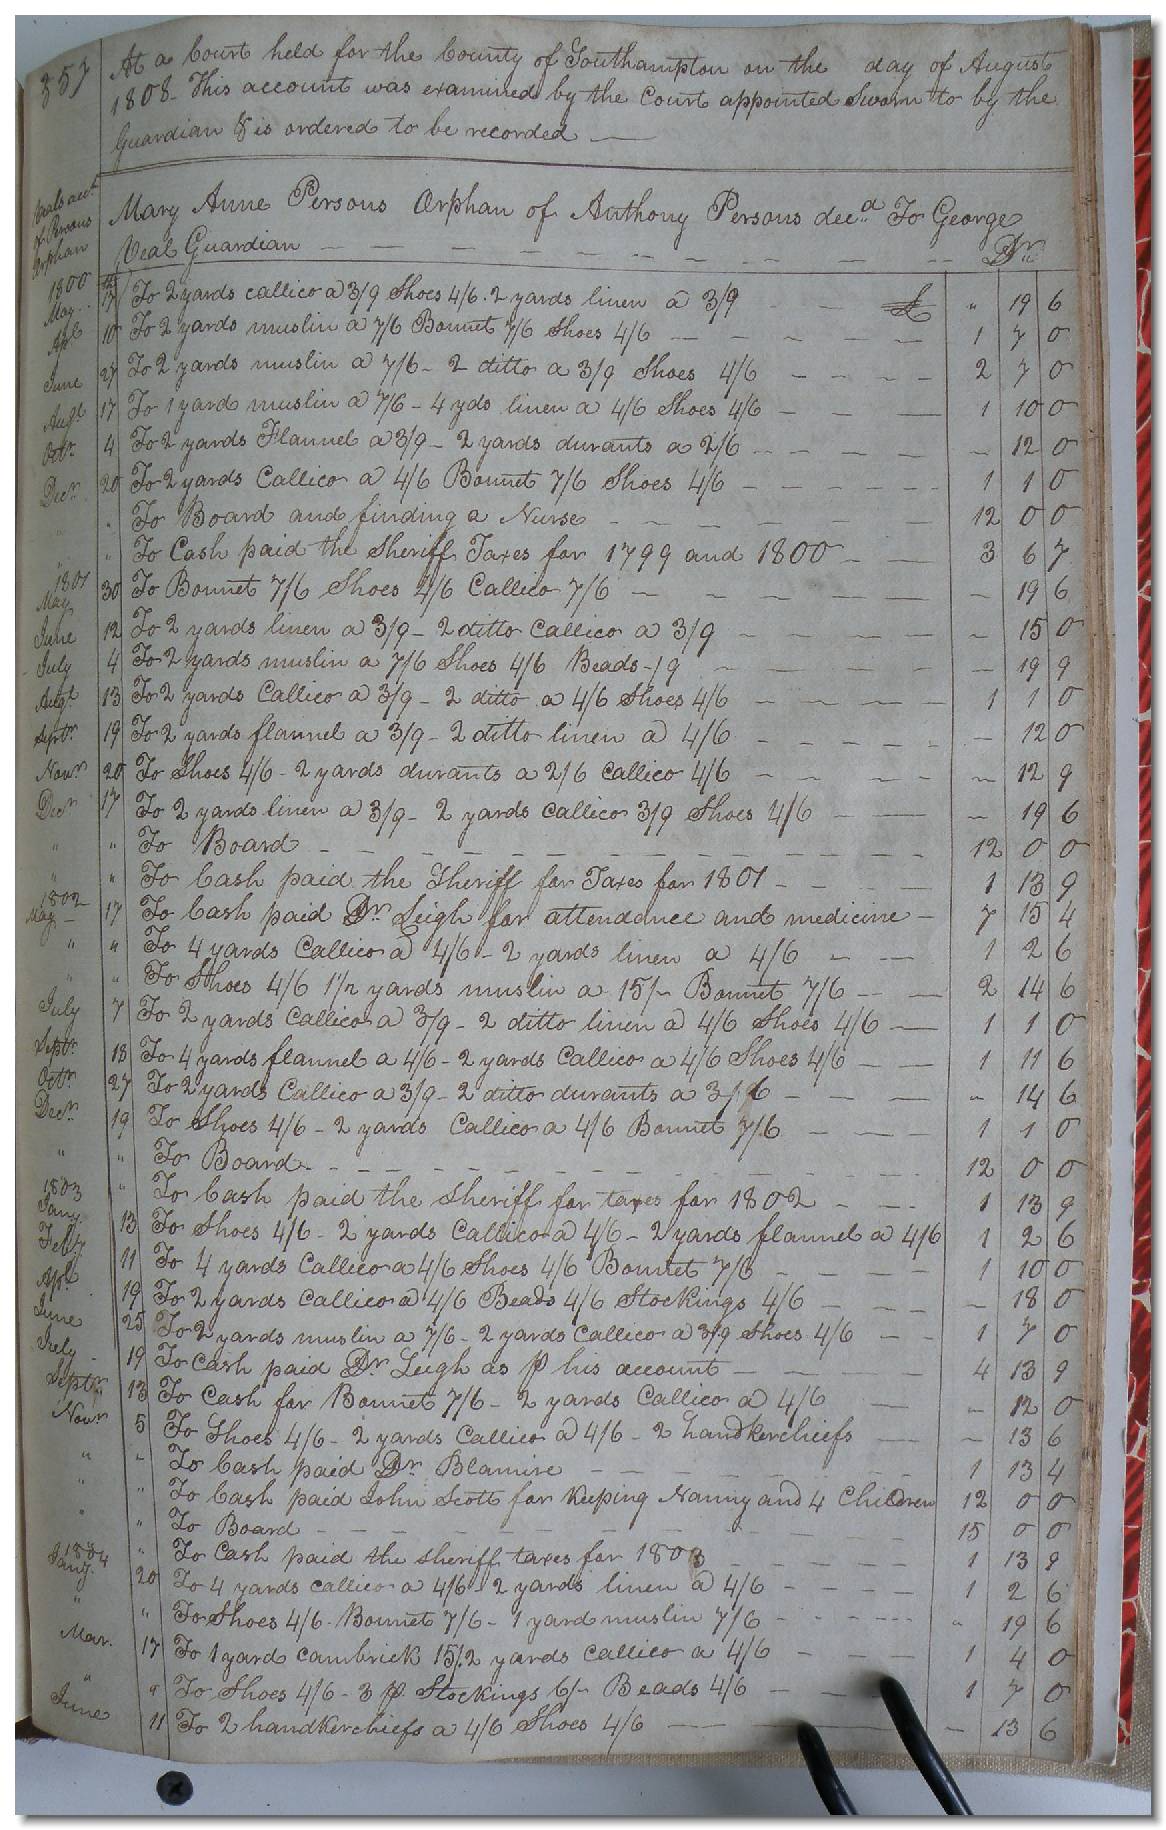 357
At a Court held for the County of Southampton on the day of August
1808. This account was examined by the Court appointed Sworn to by the
Guardian & is ordered to be recorded —
Veals acct
of Persons
Orphan
Mary Anne Persons Orphan of Anthony Persons decd To George
Veal Guardian — — — Dr
1800
May 17 To 2 yards callico a 3/9 Shoes 4/6. 2 yards linen a 3/9 — — £ " 19 6
Apl 10 To 2 yards muslin a 7/6 Bonnet 7/6 Shoes 4/6 — — — 1 7 0
June 27 To 2 yards muslin a 7/6 - 2 ditto a 3/9 Shoes 4/6 — — — 2 7 0
Augt 17 To 1 yard muslin a 7/6 - 4 yds linen a 4/6 Shoes 4/6 — — 1 10 0
Octr 4 To 2 yards Flannel a 3/9 - 2 yards durants a 2/6 — — — " 12 0
Decr 20 To 2 yards Callico a 4/6 Bonnet 7/6 Shoes 4/6 — — — 1 1 0
" " To Board and finding a Nurse — — — 12 0 0
" To Cash paid the Sheriff Taxes for 1799 and 1800 — — 3 6 7
1801
May 30 To Bonnet 7/6 Shoes 4/6 Callico 7/6 — — — — 19 6
June 12 To 2 yards linen a 3/9 - 2 ditto Callico a 3/9 — — — " 15 0
July 4 To 2 yards muslin a 7/6 Shoes 4/6 Beads -/9 — — — 19 9
Augt 13 To 2 yards Callico a 3/9 - 2 ditto a 4/6 Shoes 4/6 — — — 1 1 0
Septr 19 To 2 yards flannel a 3/9 - 2 ditto linen a 4/6 — — — — 12 0
Novr 20 To Shoes 4/6 - 2 yards durants a 2/6 Callico 4/6 — — — " 12 9
Decr 17 To 2 yards linen a 3/9 - 2 yards Callico 3/9 Shoes 4/6 — — " 19 6
" " To Board — — — 12 0 0
" " To Cash paid the Sheriff for Taxes for 1801 — — — 1 13 9
1802
May 17 To Cash paid Dr Leigh for attendance and medicine — 7 15 4
" " To 4 yards Callico a 4/6 - 2 yards linen a 4/6 — — 1 2 6
" " To Shoes 4/6 1 1/2 yards muslin a 15/- Bonnet 7/6 — — 2 14 6
July 7 To 2 yards Callico a 3/9 - 2 ditto linen a 4/6 Shoes 4/6 — 1 1 0
Septr 18 To 4 yards flannel a 4/6 - 2 yards Callico a 4/6 Shoes 4/6 — — 1 11 6
Octr 27 To 2 yards Callico a 3/9 - 2 ditto durants a 3/6 — — — " 14 6
Decr 19 To Shoes 4/6 - 2 yards Callico a 4/6 Bonnet 7/6 — — — 1 1 0
" " To Board — — — 12 0 0
" To Cash paid the Sheriff for taxes for 1802 — — — 1 13 9
1803
Jany 13 To Shoes 4/6 - 2 yards Callico a 4/6 - 2 yards flannel a 4/6 1 2 6
Feby 11 To 4 yards Callico a 4/6 Shoes 4/6 Bonnet 7/6 — — — 1 10 0
Apl 19 To 2 yards Callico a 4/6 Beads 4/6 Stockings 4/6 — — — — 18 0
June 25 To 2 yards muslin a 7/6 - 2 yards Callico a 3/9 Shoes 4/6 — — 1 7 0
July 19 To Cash paid Dr Leigh as p his account — — — 4 13 9
Septr 13 To Cash for Bonnet 7/6 - 2 yards Callico a 4/6 — — " 12 0
Novr 5 To Shoes 4/6 - 2 yards Callico a 4/6 - 2 handkerchiefs — — 13 6
" " To Cash paid Dr Blamire — — — 1 13 4
" " To Cash paid John Scott for keeping Nanny and 4 Children 12 0 0
" To Board — — — 15 0 0
" To Cash paid the sheriff taxes for 1803 — — — 1 13 9
1804
Jany 20 To 4 yards callico a 4/6 - 2 yards linen a 4/6 — — — 1 2 6
" " To Shoes 4/6 - Bonnet 7/6 - 1 yard muslin 7/6 — — — " 19 6
Mar. 17 To 1 yard cambrick 15/. 2 yards Callico a 4/6 — — — 1 4 0
" " To Shoes 4/6 - 3 p Stockings 6/- Beads 4/6 — — 1 7 0
June 11 To 2 handkerchiefs a 4/6 Shoes 4/6 — — — 13 6